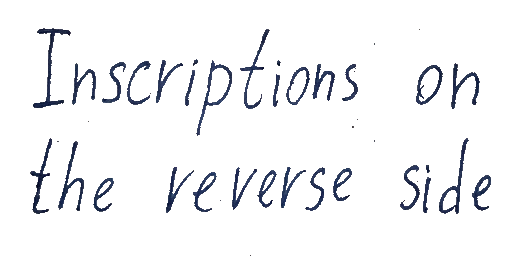 Inscriptions on
the reverse side